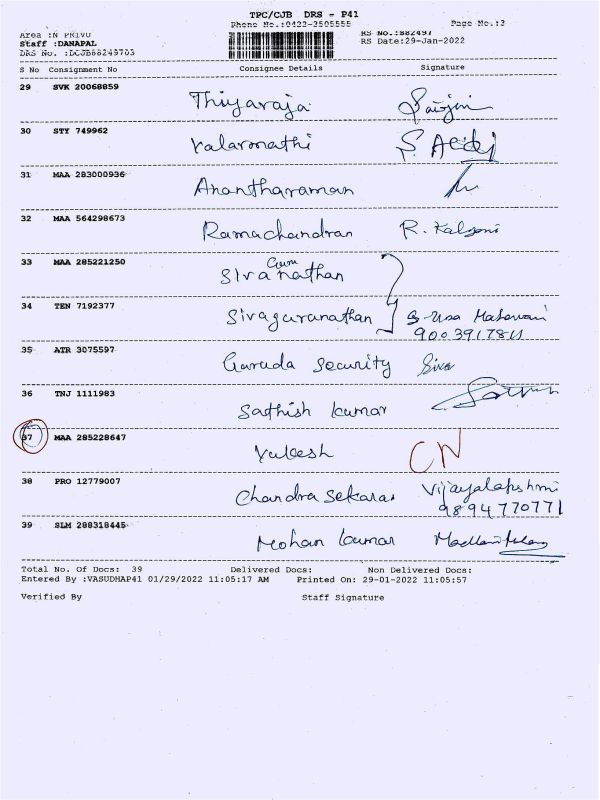 TPC/CJB DRS - P41
Phone No.:0422-2505555 Page No.:3
Area :N PRIVU RS No.:882497
Staff :DANAPAL RS Date:29-Jan-2022
DRS No. :DCJB88249703
S No Consignment No Consignee Details Signature
29 SVK 20068859
Thiyaraja
30 STY 749962
Valarmathi
31 MAA 283000936
Anantharaman
32 MAA 564298673
Ramachandran R. Kalyani
33 MAA 285221250
Guru
Sivanathan
34 TEN 7192377
Sivagurunathan
35 ATR 3075597
Garuda Security Siva
36 TNJ 1111983
Sathish kumar
37 MAA 285228647
CN
38 PRO 12779007
Chandra Sekaran Vijayalakshmi
9894770771
39 SLM 288318445
Mohan kumar
Total No. Of Docs: 39 Delivered Docs: Non Delivered Docs:
Entered By :VASUDHAP41 01/29/2022 11:05:17 AM Printed On: 29-01-2022 11:05:57
Verified By Staff Signature